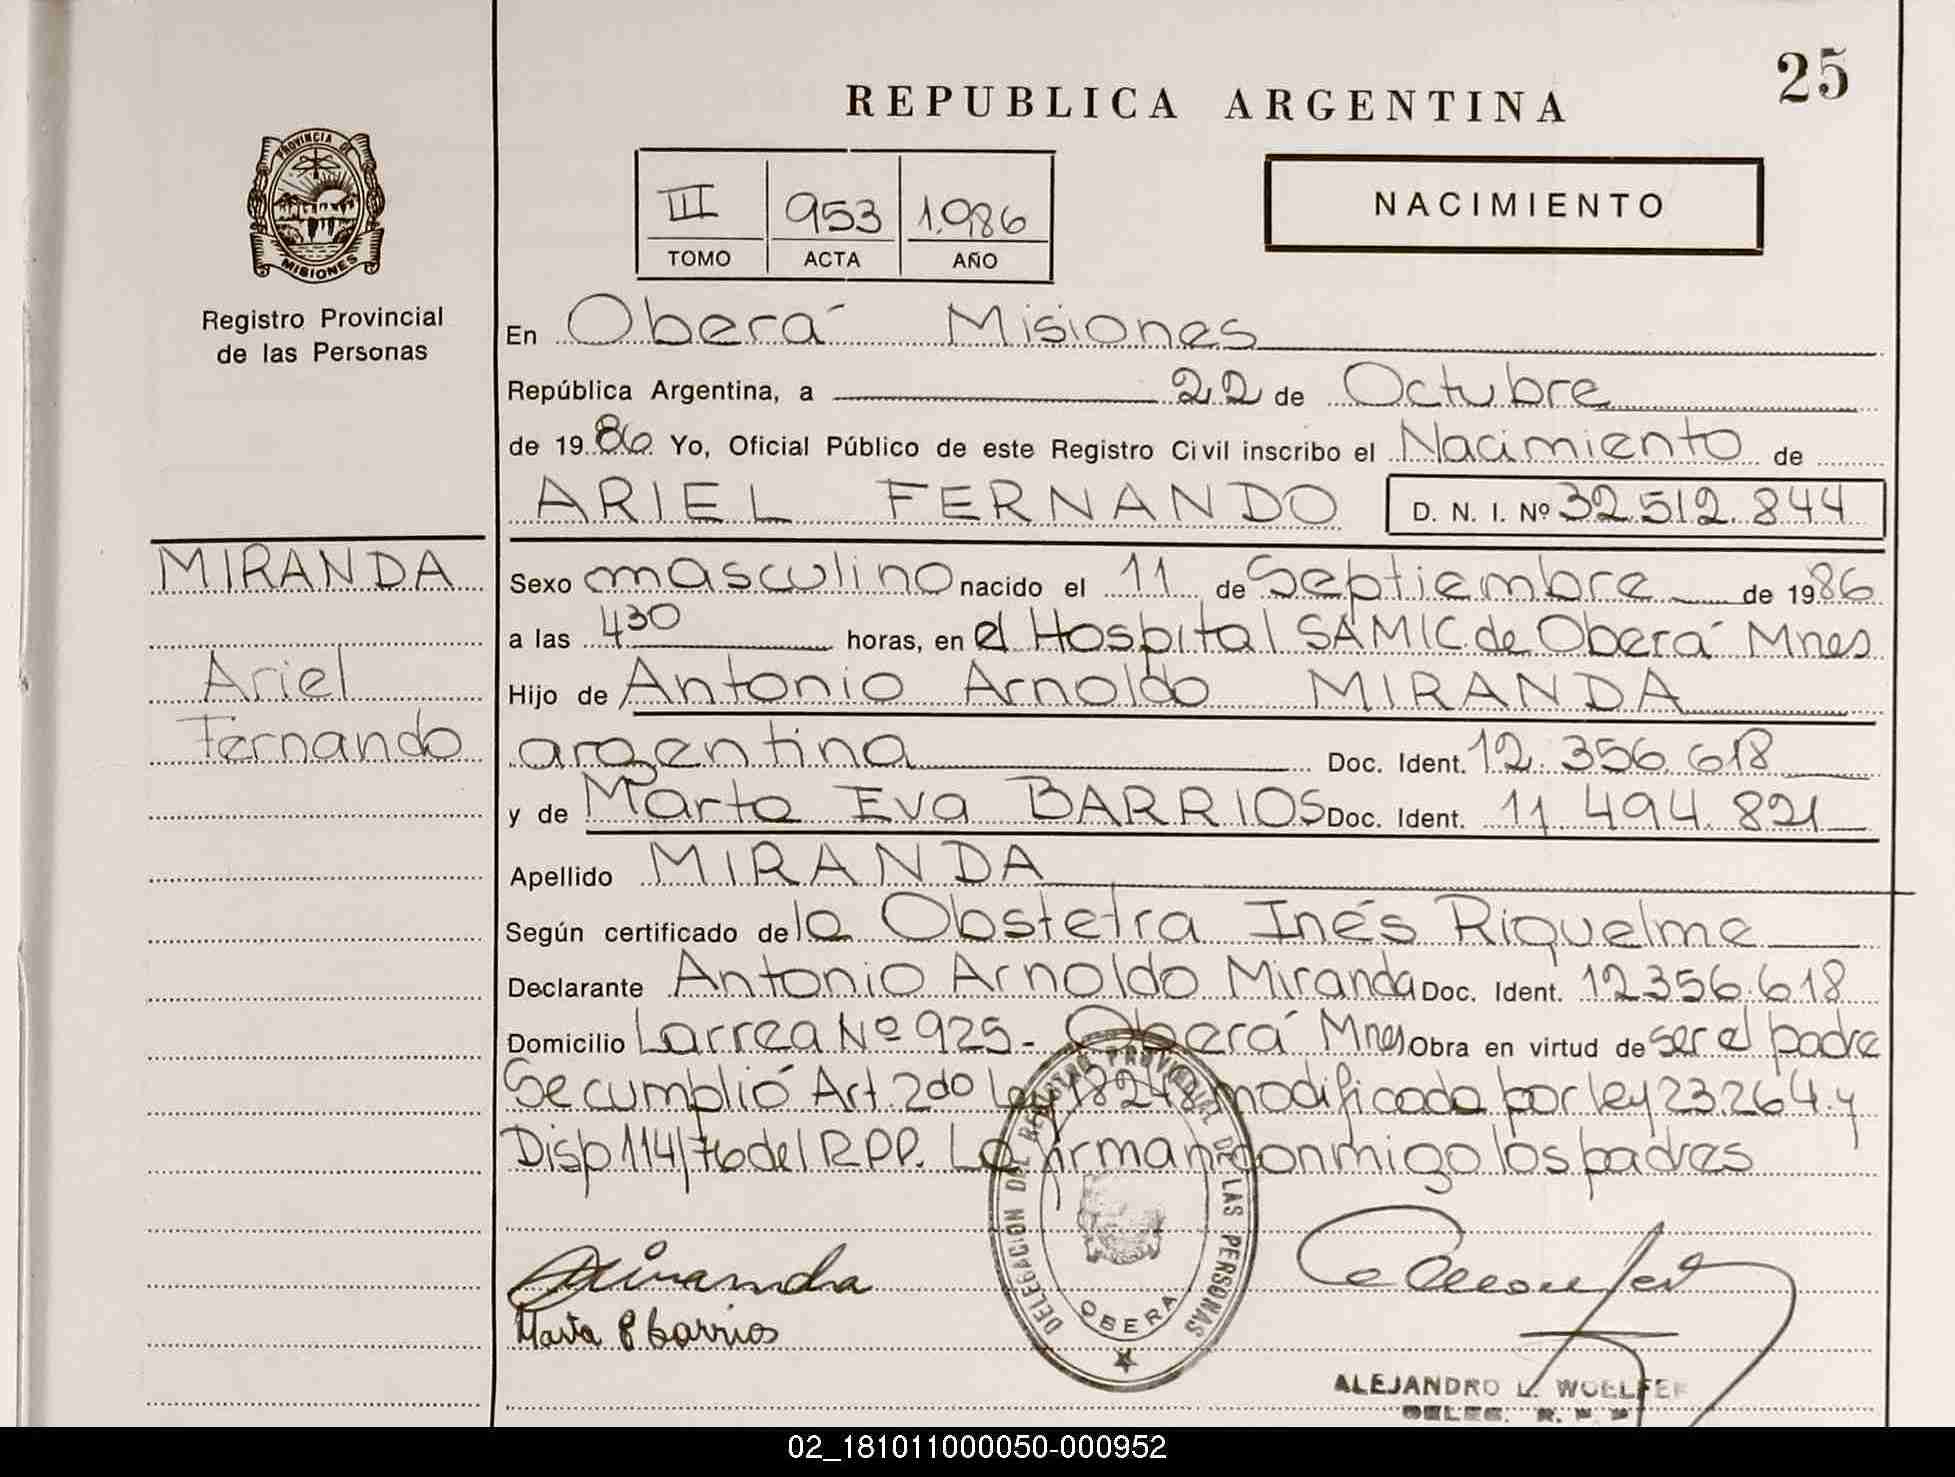 25
REPUBLICA ARGENTINA
PROVINCIA DE
MISIONES
Registro Provincial
de las Personas
III 953 1.986
TOMO ACTA AÑO
NACIMIENTO
En Oberá Misiones
República Argentina, a 22 de Octubre
de 1986 Yo, Oficial Público de este Registro Civil inscribo el Nacimiento de
ARIEL FERNANDO D. N. I. Nº 32.512.844
MIRANDA
Ariel
Fernando
Sexo masculino nacido el 11 de Septiembre de 1986
a las 4 30 horas, en el Hospital SAMIC. de Oberá Mnes
Hijo de Antonio Arnoldo MIRANDA
argentina Doc. Ident. 12.356.618
y de Marta Eva BARRIOS Doc. Ident. 11.494.821
Apellido MIRANDA
Según certificado de la Obstetra Inés Riquelme
Declarante Antonio Arnoldo Miranda Doc. Ident. 12.356.618
Domicilio Larrea Nº 925 - Oberá Mnes Obra en virtud de ser el padre
Se cumplió Art. 2do Ley 18248 modificada por ley 23.264. y
Disp 114/76 del R.P.P. La firman conmigo los padres
DELEGACION DEL REGISTRO PROVINCIAL DE LAS PERSONAS
OBERA
Miranda
Marta E Barrios
ALEJANDRO L. WOELFER
DELEG. R.
02_181011000050-000952